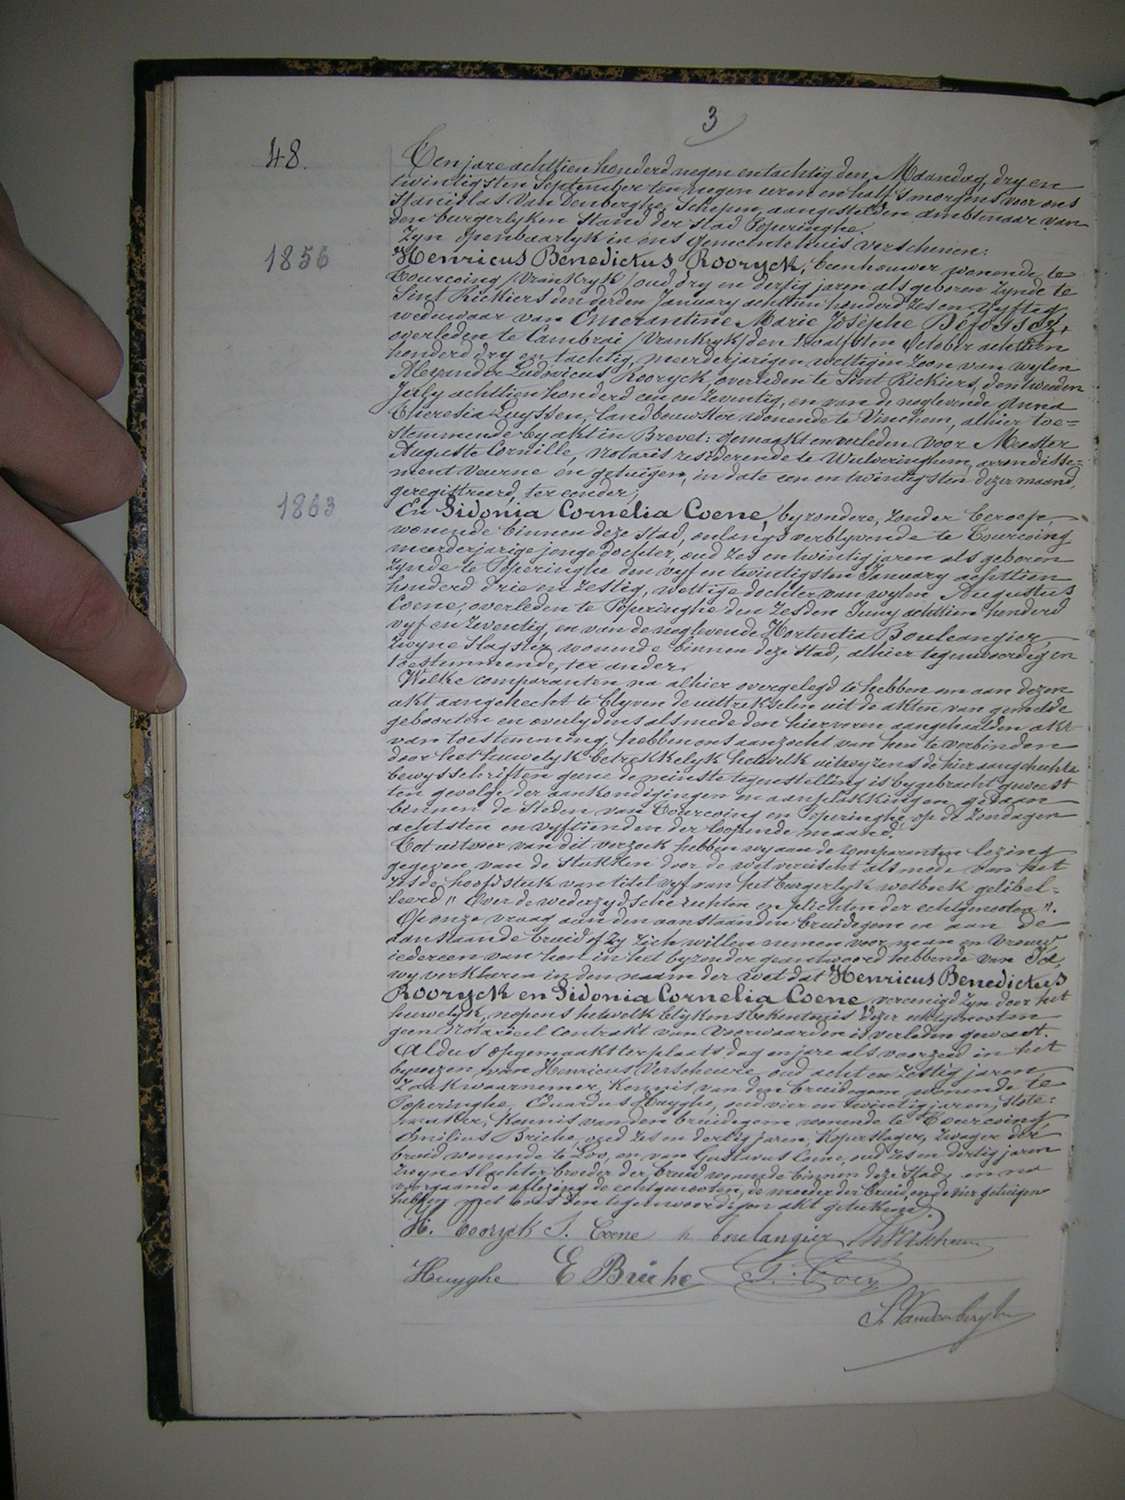 3
48.
Ten jare achttien honderd negen en tachtig den Maandag, dry en
twintigsten September ten negen uren en half 's morgens voor ons
Stanislas Van Denberghe, Schepen, aangestelden ambtenaar van
den burgerlyken Stand der Stad Poperinghe.
Zyn openbaarlyk in ons gemeentehuis verschenen:
1856
Henricus Benedictus Rooryck, beenhouwer, wonende te
Tourcoing (Vrankryk) oud dry en dertig jaren als geboren zynde te
Sint Rickiers den derden January achttien honderd zes en vyftig
weduwaar van Omerantine Marie Josèphe Defossez,
overleden te Cambrai (Vrankryk) den twaalfsten October achttien
honderd dry en tachtig, meerderjarigen wettigen zoon van wylen
Alexander Ludovicus Rooryck, overleden te Sint Rickiers, den tweeden
July achttien honderd een en zeventig, en van de nogelevende Anna
Theresia Luyssen, landbouwster wonende te Vinchem, alhier toe=
stemmende by akt in Brevet: gemaakt en verleden voor Meester
Auguste Cornillé, notaris residerende te Wulveringhem, arrondisse=
ment Veurne en getuigen, in date een en twintigsten dezer maand,
geregistreerd, ter eender;
1863
En Sidonia Cornelia Coene, byzondere, zonder beroep,
wonende binnen deze stad, onlangs verblyvende te Tourcoing
meerderjarige jonge dochter, oud zes en twintig jaren als geboren
zynde te Poperinghe den vyf en twintigsten January achttien
honderd drie en zestig, wettige dochter van wylen Augustus
Coene, overleden te Poperinghe den zesden Juny achttien honderd
vyf en zeventig, en van de noglevende Hortentia Boulangier,
zwyne slagster wonende binnen deze stad, alhier tegenwoordig en
toestemmende, ter ander.
Welke comparanten na alhier overgelegd te hebben om aan dezen
akt aangehecht te blyven de uittrekselen uit de akten van gemelde
geboorten en overlydens alsmede den hiervoren aangehaalden akt
van toestemming, hebben ons aanzocht van hen te verbinden
door het huwelyk betrekkelyk hetwelk uitwyzens de hier aangehechte
bewysschriften geene de minste tegenstelling is bygebracht geweest
ten gevolge der aankondigingen en aanplakkingen gedaan
binnen de steden van Tourcoing en Poperinghe, op de Zondagen
achtsten en vyftienden der loopende maand.
Tot uitvoer van dit verzoek hebben wy aan de comparanten lezing
gegeven van de stukken door de wet vereischt alsmede van het
zesde hoofdstuk van titel vyf van het burgerlyk wetboek gelibel=
leerd "Over de wederzydsche rechten en plichten der echtgenooten".
Op onze vraag aan den aanstaanden bruidegom en aan de
aanstaande bruid of zy zich willen nemen voor man en vrouw
iedereen van hen in het byzonder geantwoord hebbende van Ja,
wy verklaren in den naam der wet dat Henricus Benedictus
Rooryck en Sidonia Cornelia Coene, vereenigd zyn door het
huwelyk, nopens hetwelk blykens bekentenis dezer echtgenooten
geen notarieel contrakt van voorwaarden is verleden geweest.
Aldus opgemaakt ter plaats dag en jare als voorzeid in het
bywezen van Henricus Verscheure, oud acht en zestig jaren,
Zaakwaarnemer, kennis van den bruidegom wonende te
Poperinghe, Eduardus Huyghe, oud vier en twintig jaren, slote=
maker, kennis van den bruidegom wonende te Tourcoing,
Emilius Brieke, oud zes en dertig jaren, koperslager, zwager der
bruid wonende te Loo, en van Gustavus Coene, oud zes en dertig jaren
zwyneslachter broeder der bruid wonende binnen deze stad, en na
voorgaande aflezing de echtgenooten, de moeder der bruid, en de vier getuigen
hebben met ons den tegenwoordigen akt geteekend.
H. Rooryck S. Coene h boulangier
Huyghe E Brieke G. Coene
S. Vandenberghe